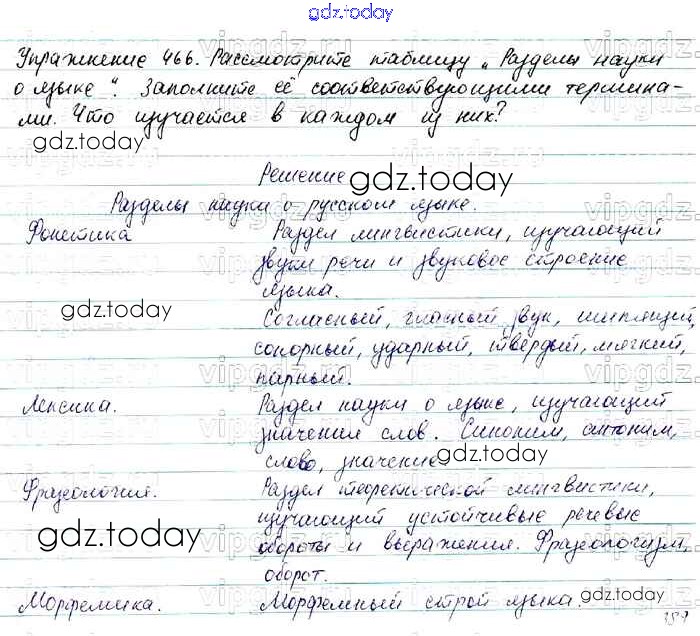 gdz.today
Упражнение 466. Рассмотрите таблицу „Разделы науки
о языке“. Заполните её соответствующими термина-
ми. Что изучается в каждом из них?
gdz.today
Решение gdz.today
Разделы науки о русском языке.
Фонетика Раздел лингвистики, изучающий
звуки речи и звуковое строение
языка.
gdz.today
Согласный, гласный, звук, шипящий,
сонорный, ударный, твёрдый, мягкий,
парный.
Лексика. Раздел науки о языке, изучающий
значения слов. Синоним, антоним,
слово, значение.
gdz.today
Фразеология. Раздел теоретической лингвистики,
изучающий устойчивые речевые
gdz.today
обороты и выражения. Фразеологизм,
оборот.
Морфемика. Морфемный строй языка.
gdz.today